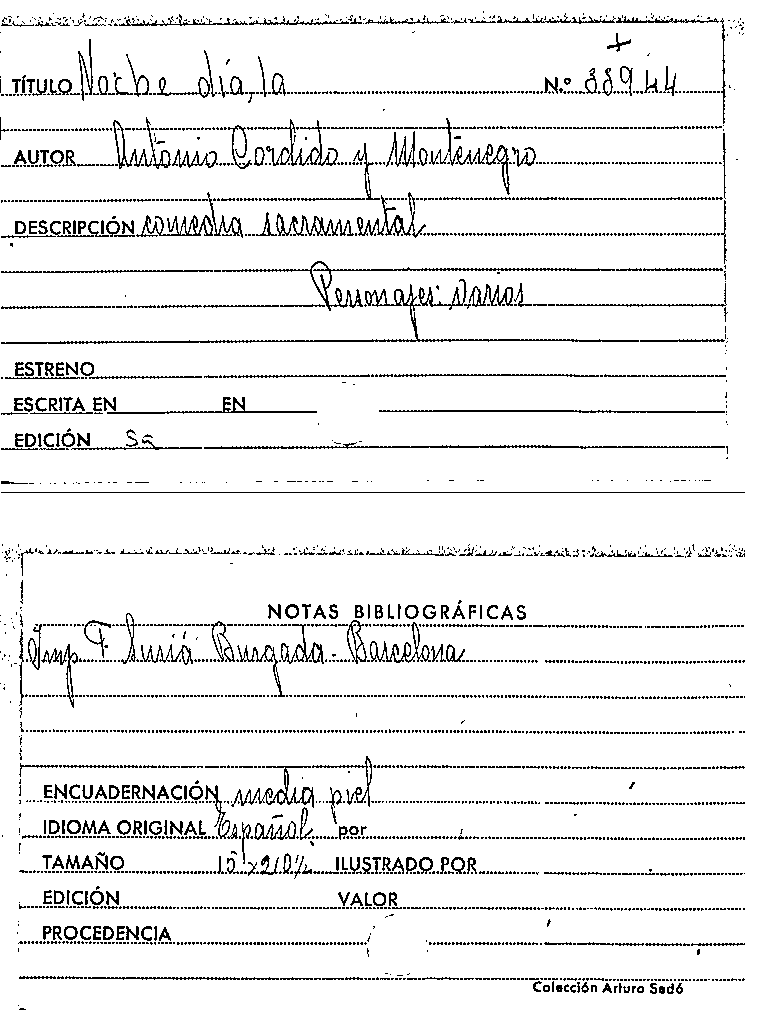 TÍTULO Noche día, la N.º 38944
AUTOR Antonio Cordido y Montenegro
DESCRIPCIÓN comedia sacramental
Personajes: varios
ESTRENO
ESCRITA EN EN
EDICIÓN Sa
NOTAS BIBLIOGRÁFICAS
Imp F. Suriá Burgada - Barcelona
ENCUADERNACIÓN media piel
IDIOMA ORIGINAL Español por
TAMAÑO ILUSTRADO POR
EDICIÓN VALOR
PROCEDENCIA
Colección Arturo Sedó